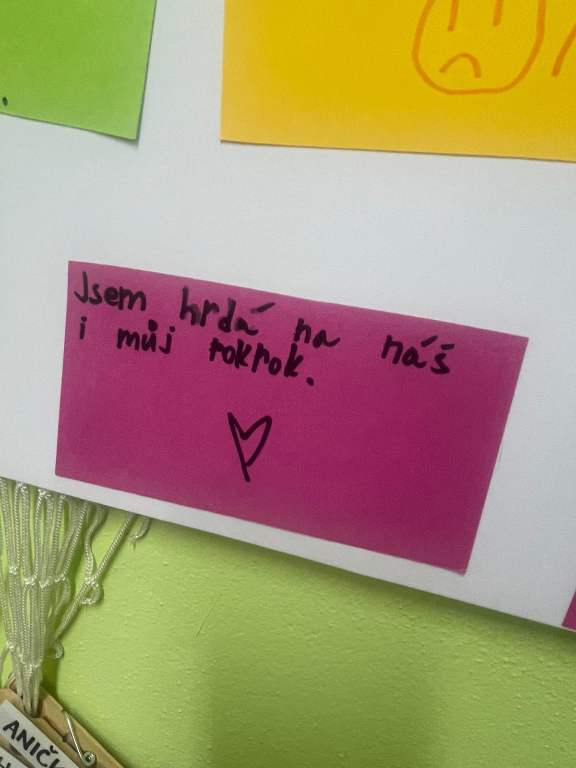 Jsem hrdá na náš
i můj rokrok.
ANIČK